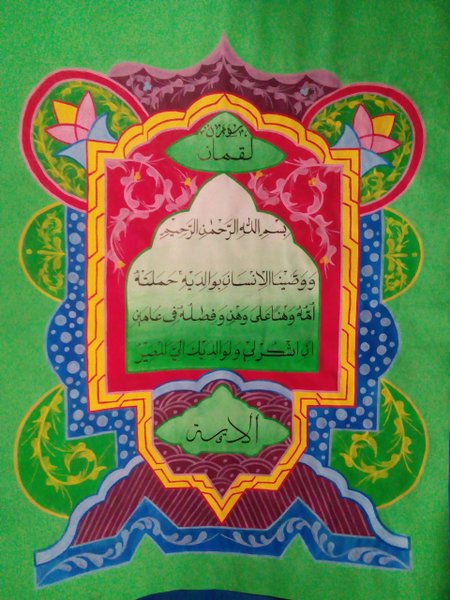 لقمان
بِسْمِ اللهِ الرَّحْمٰنِ الرَّحِيْمِ
وَوَصَّيْنَا الْاِنْسَانَ بِوَالِدَيْهِ حَمَلَتْهُ
اُمُّهُ وَهْنًا عَلٰى وَهْنٍ وَفِصٰلُهُ فِى عَامَيْنِ
اَنِ اشْكُرْ لِىْ وَلِوَالِدَيْكَ اِلَىَّ الْمَصِيْرُ
الاية